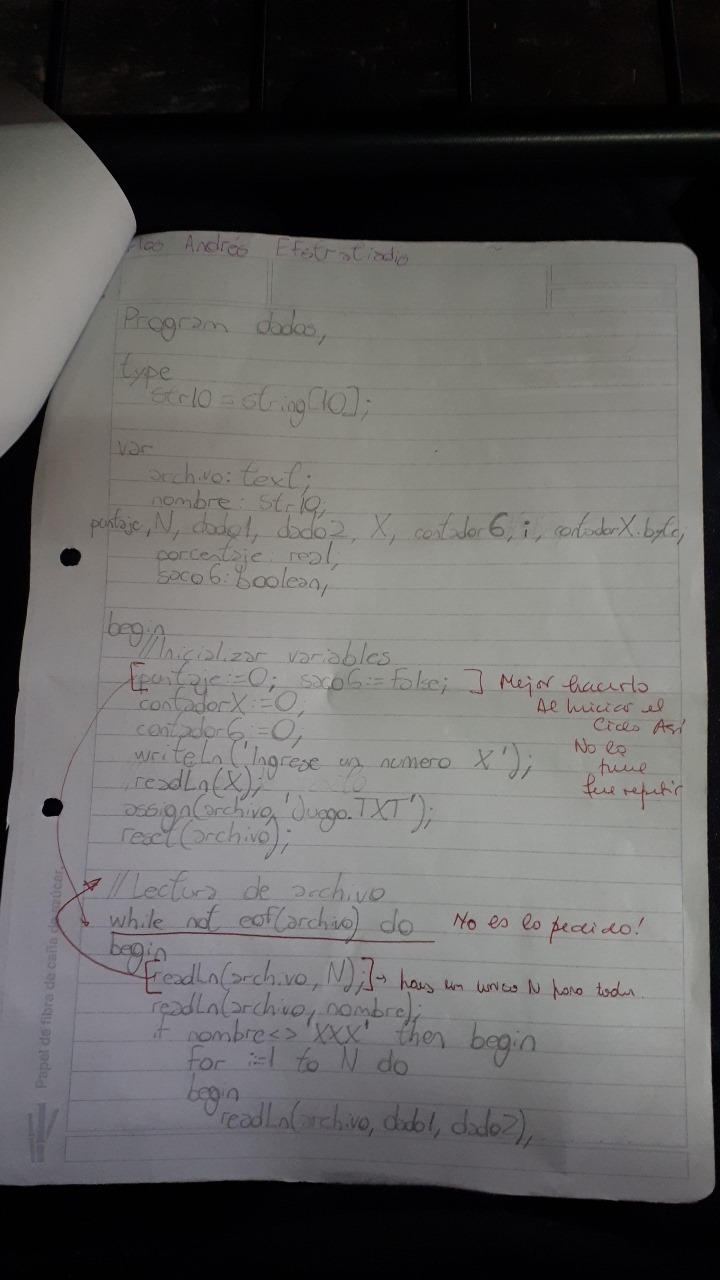 Andrés Efstratiadio
Program dados;
type
str10 = string[10];
var
archivo: text;
nombre: str10;
puntaje, N, dado1, dado2, X, contador6, i, contadorX: byte;
porcentaje: real;
saco6: boolean;
begin
//Inicializar variables
[puntaje:=0; saco6:=false; ] Mejor hacerlo
Al iniciar el
ciclo Así
No lo
tiene
que repetir
contadorX:=0;
contador6:=0;
writeln('Ingrese un numero X');
readLn(X);
assign(archivo, 'Juego.TXT');
reset(archivo);
//Lectura de archivo
while not eof(archivo) do No es lo pedido!
begin
[readLn(archivo, N);]→ hay un unico N para todos.
readLn(archivo, nombre);
if nombre<>'XXX' then begin
for i:=1 to N do
begin
readLn(archivo, dado1, dado2);
Papel de fibra de caña de azúcar.